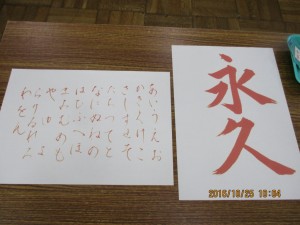 あいうえお
かきくけこ
さしすせそ
たちつてと
なにぬねの
はひふへほ
まみむめも
や ゆ よ
らりるれろ
わをん
永久
2016/10/25 10:04